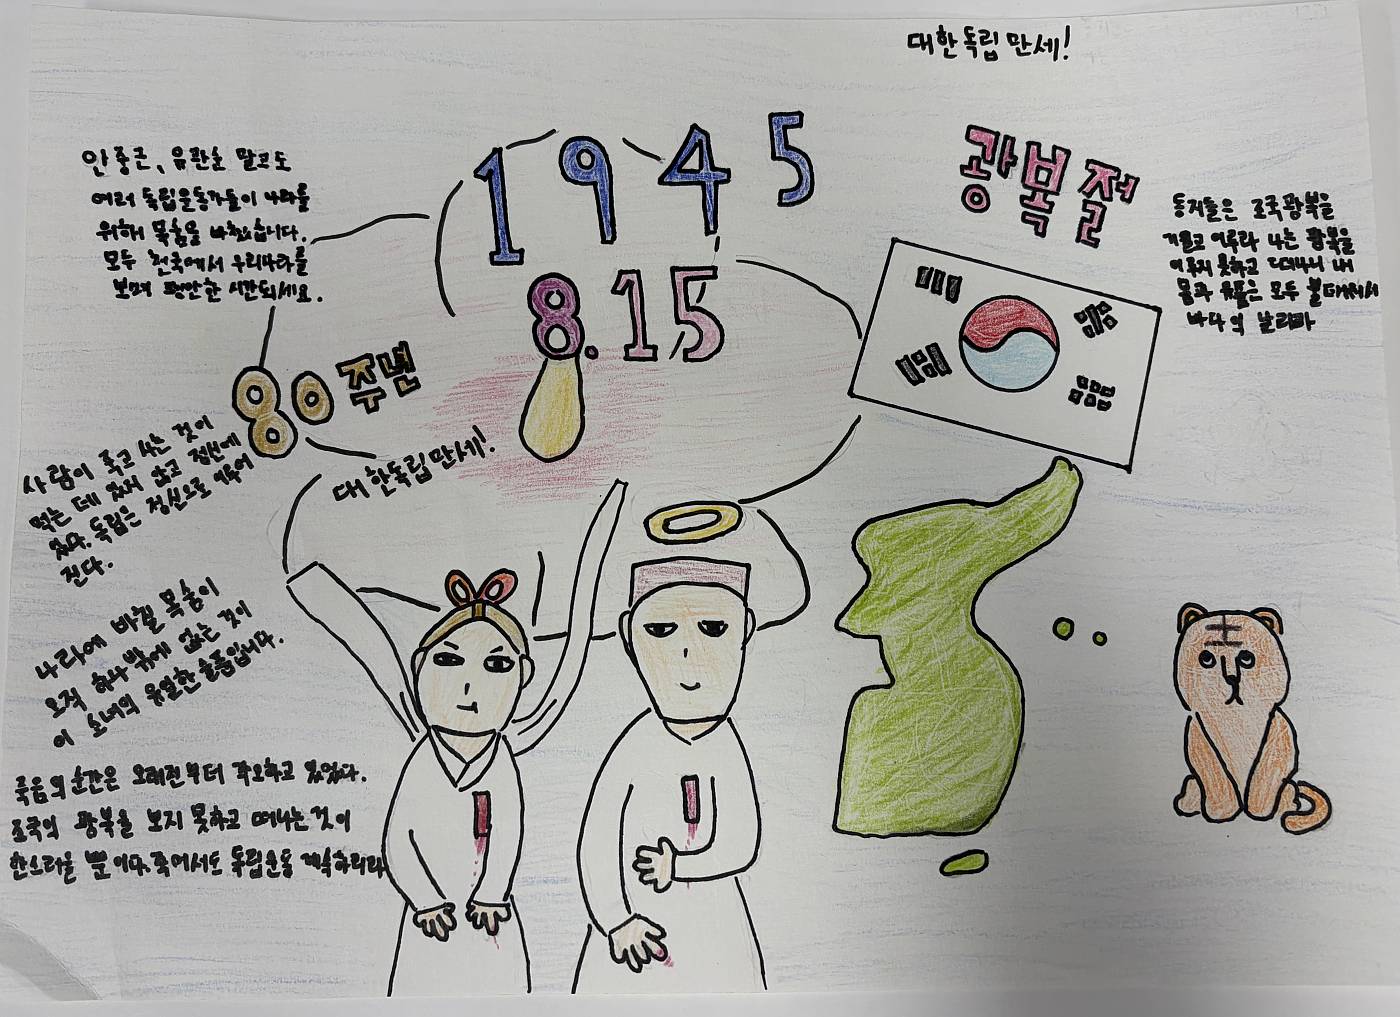 대한독립 만세!
1945
8.15
광복절
안중근, 유관순 말고도
여러 독립운동가들이 나라를
위해 목숨을 바쳤습니다.
모두 천국에서 우리나라를
보며 평안한 시간되세요.
동지들은 조국광복을
이루지 못하고 떠나니 내
몸과 유품은 모두 불태워서
바다의 날리라
80주년
대한독립만세!
사람이 죽고 사는 것이
먹는 데 있지 않고 정신에
있다. 독립은 정신으로 이루어
진다.
나라에 바칠 목숨이
오직 하나밖에 없는 것이
이 소녀의 유일한 슬픔입니다.
죽음의 순간은 오래전부터 각오하고 있었다.
조국의 광복을 보지 못하고 떠나는 것이
한스러울 뿐이다. 죽어서도 독립운동 계속하리라